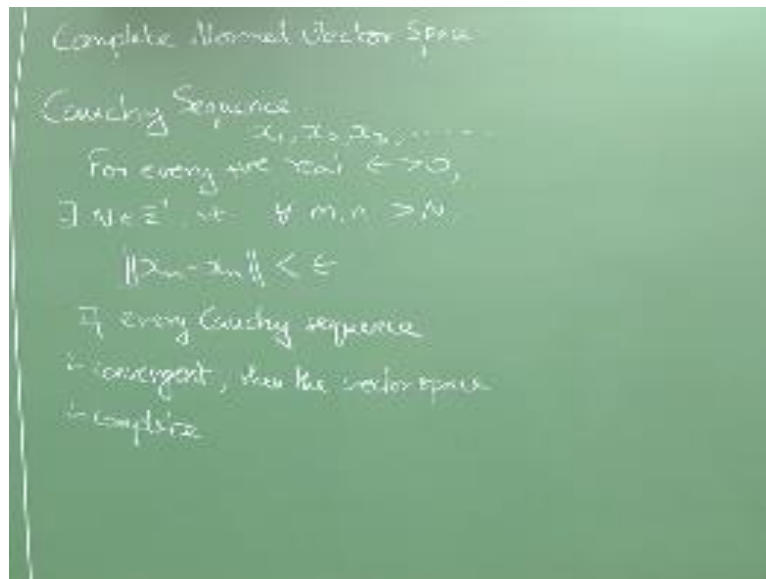 Complete Normed Vector Space
Cauchy Sequence
x₁, x₂, x₃, ......
For every +ve real ϵ > 0,
∃ N ∈ Z⁺, st ∀ m, n > N
||xₘ - xₙ|| < ϵ
If every Cauchy sequence
is convergent, then the vector space
is complete